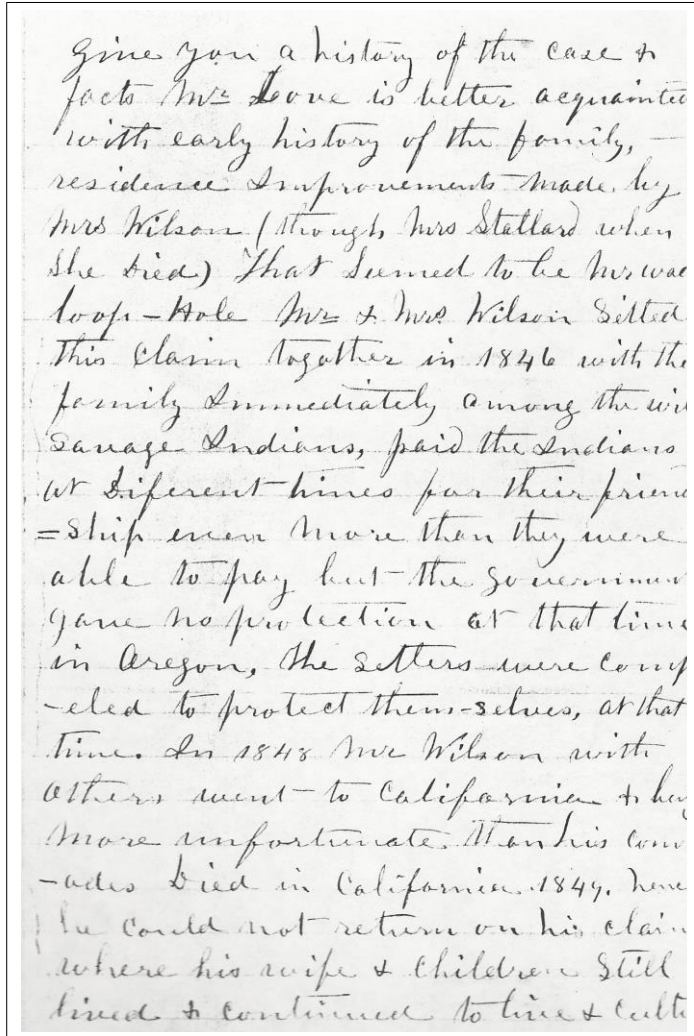 Give you a history of the case &
facts Mr Love is better acquainted
with early history of the family, —
residence Improvements made by
Mrs Wilson (though Mrs Stallard when
She Died) That Seemed to be Mr
loop-Hole Mr & Mrs Wilson Setted
this Claim together in 1846 with the
family Immediately among the
Savage Indians, paid the Indians
at Diferent times for their frien
=Ship even More than they were
able to pay but the government
gave no protection at that time
in Oregon, the Setters were comp
-eled to protect them-selves, at that
time. In 1848 Mr Wilson with
others went to California &
More unfortunate than his com
-ades Died in California 1849.
he could not return on his claim
where his wife & Children Still
lived & continued to live & Culti